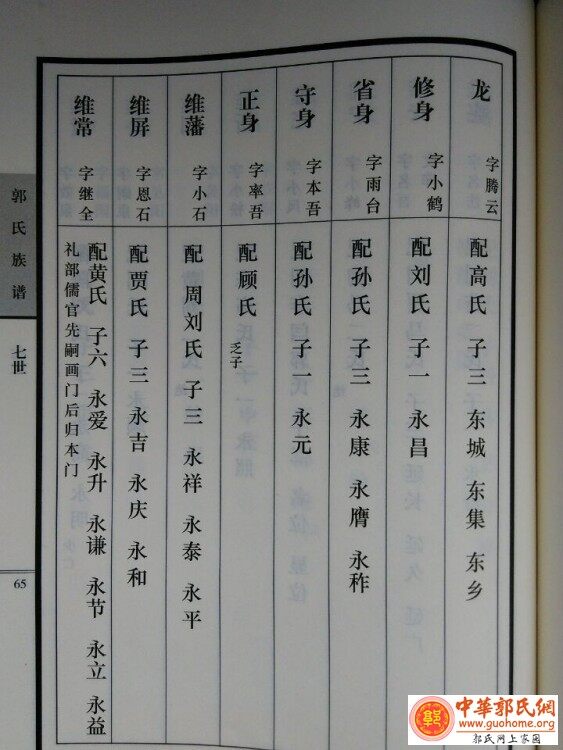 龙 字腾云 配高氏 子三 东城 东集 东乡
修身 字小鹤 配刘氏 子一 永昌
省身 字雨台 配孙氏 子三 永康 永膺 永祚
守身 字本吾 配孙氏 子一 永元
正身 字率吾 配顾氏 乏子
维藩 字小石 配周刘氏 子三 永祥 永泰 永平
维屏 字恩石 配贾氏 子三 永吉 永庆 永和
维常 字继全 配黄氏 子六 永爱 永升 永谦 永节 永立 永益
礼部儒官先嗣画门后归本门
郭氏族谱
七世
65
中華郭氏網
www.guohome.org
郭氏网上家园